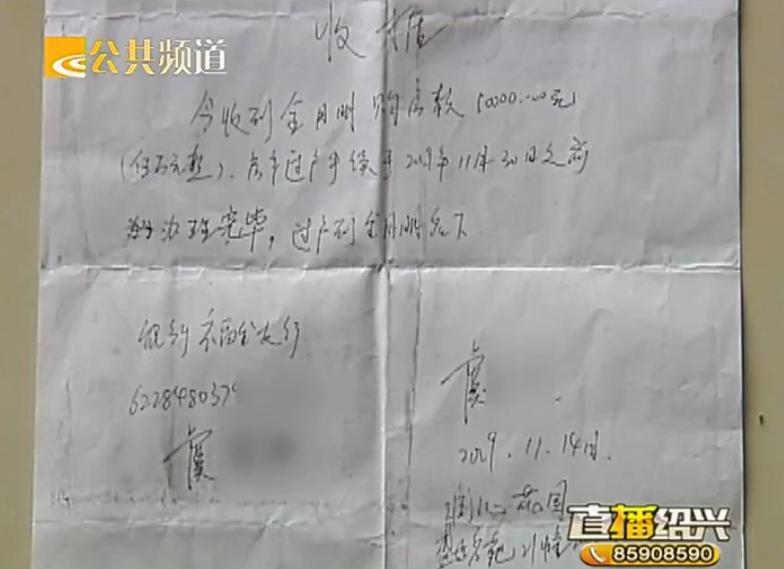 公共频道
收据
今收到金月明购房款50000.00元
(伍万元整)、房产过户手续于2019年11月30日之前
办理完毕，过户到金月明名下
银行 农业
622848037
虞
虞
2019.11.14日.
花园
直播绍兴
85908590